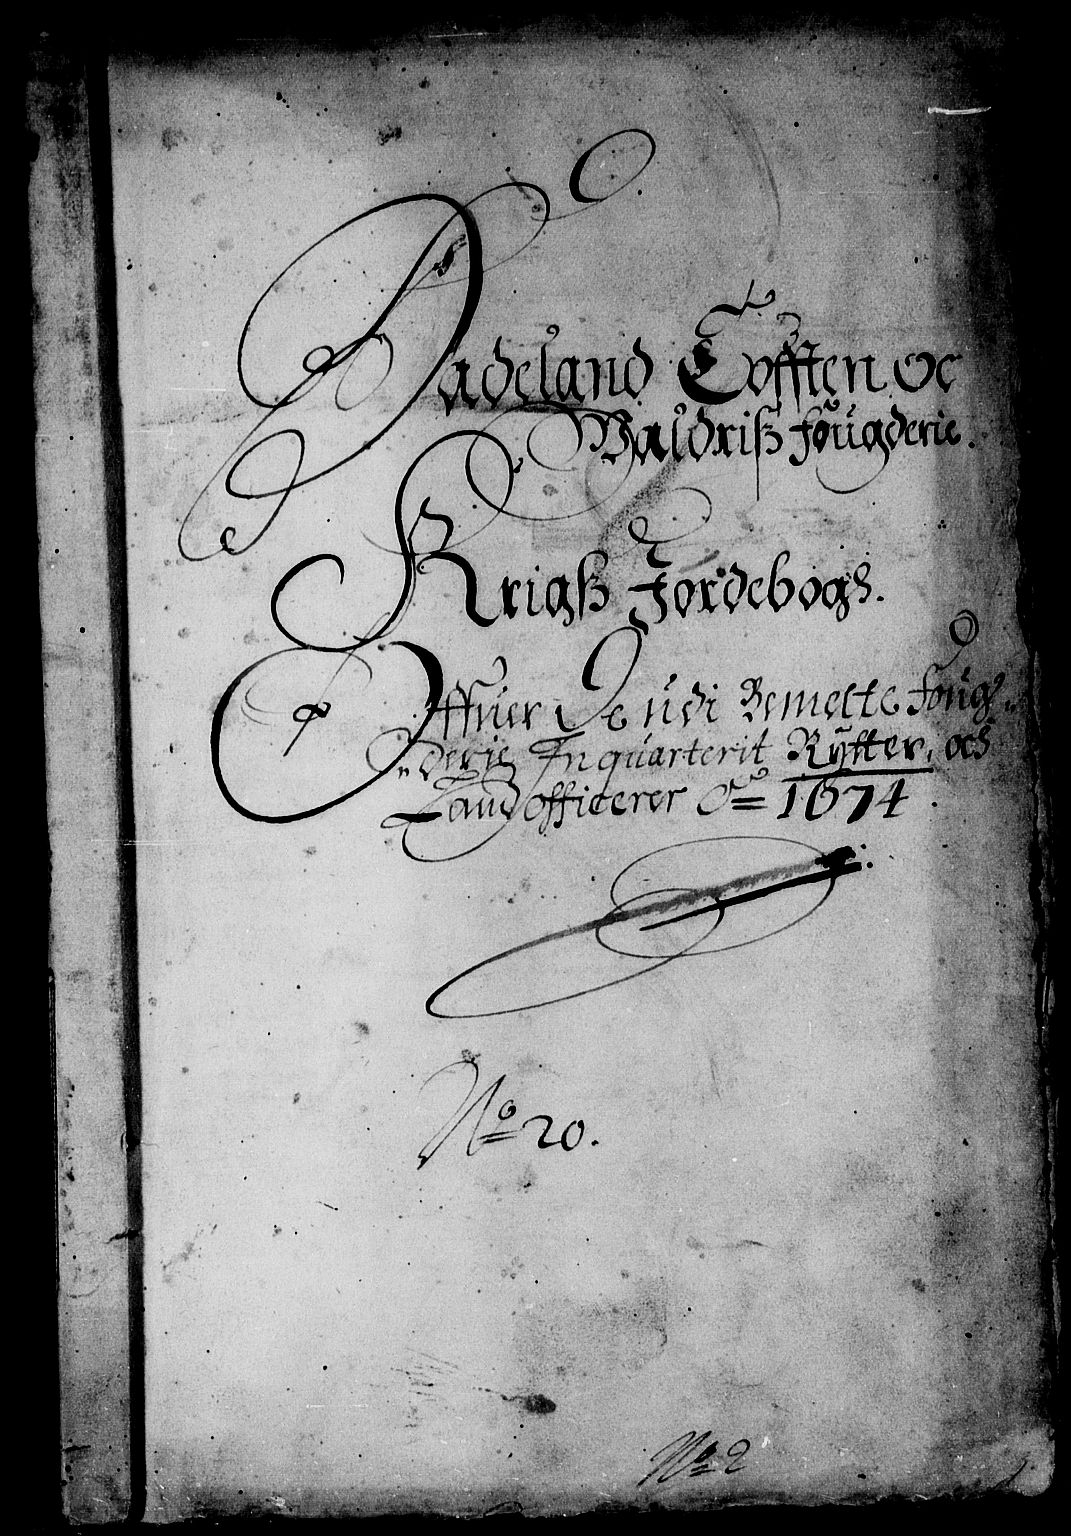 Hadeland Tofften oc
Waldriß fougderie.
Krigß Jordebogs.
Offuer De udi Bemelte Foug„
„derie Inquarterit Rytter, och
Landofficerer A̲o̲ 1674.
No 20.
No 2